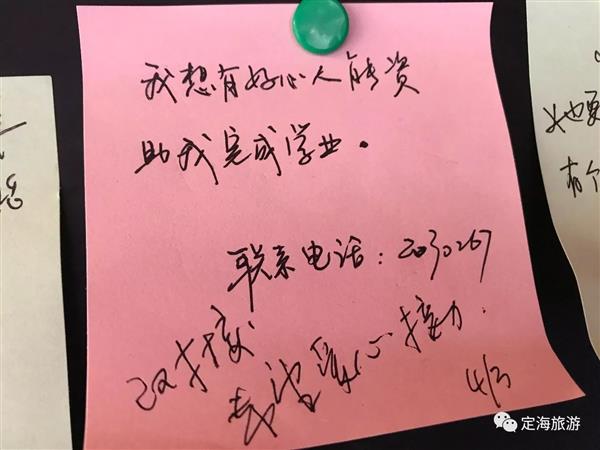 我想有好心人能资
助我完成学业。
联系电话：2030267
爱心接力.
4/3
她要
有个
定海旅游